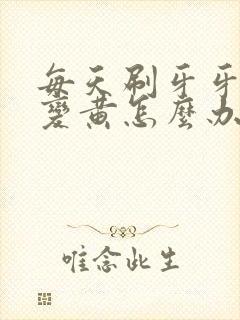 每天刷牙牙
變黄怎麼办
唯念此生